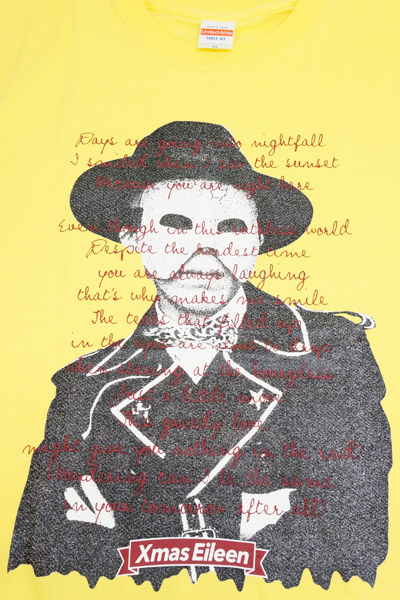 United Athle
5001-01
Days are going into nightfall
I smiled when I saw the sunset
Because you are right here
Even though in this ruthless world
Despite the hardest time
you are always laughing
that's why makes me smile
The tears that filled up
in the eyes are about to drop
when staring at the hourglass
Just a little more
This greedy love
might give you nothing in the end?
in your tomorrow after all?
Xmas Eileen